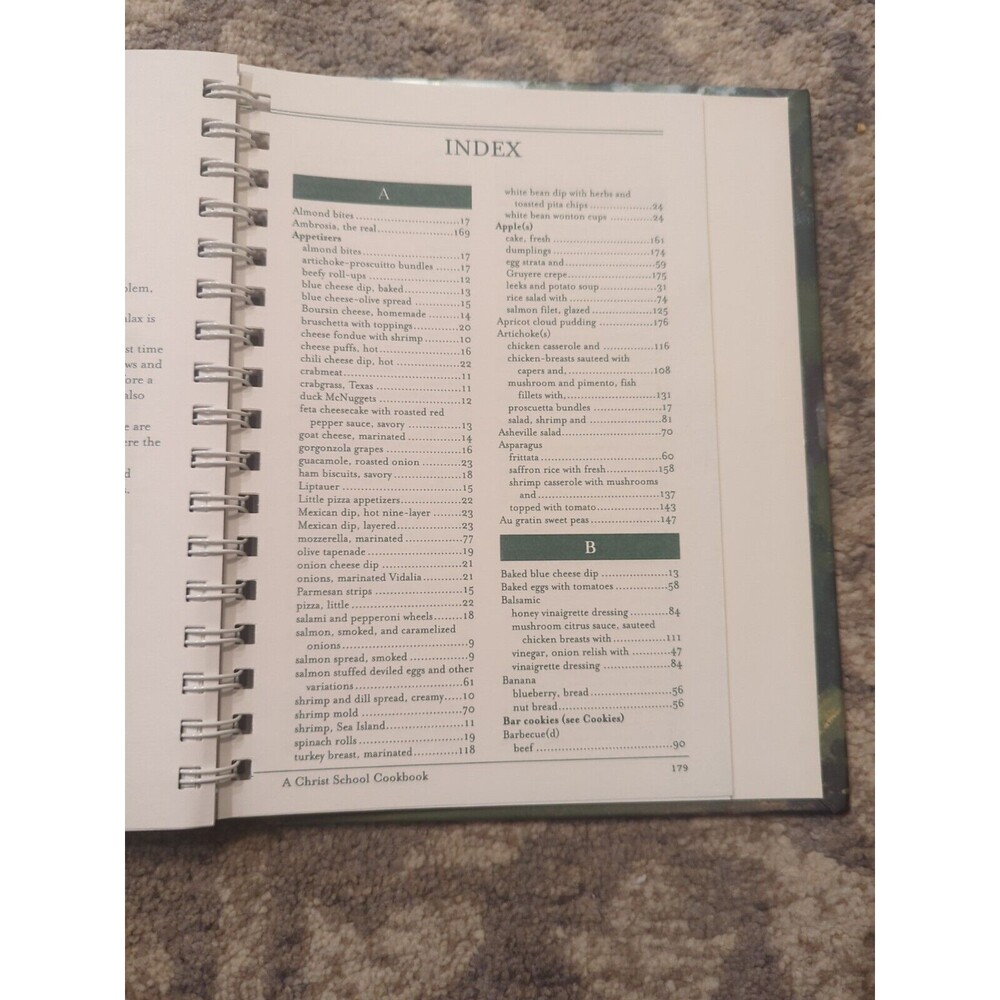 blem,
alax is
st time
ws and
ore a
also
e are
ere the
d
INDEX
A
Almond bites ..........17
Ambrosia, the real..........169
Appetizers
almond bites..........17
artichoke-proscuitto bundles ..........17
beefy roll-ups ..........12
blue cheese dip, baked..........13
blue cheese-olive spread ..........15
Boursin cheese, homemade ..........14
bruschetta with toppings..........20
cheese fondue with shrimp ..........10
cheese puffs, hot..........16
chili cheese dip, hot ..........22
crabmeat..........11
crabgrass, Texas ..........11
duck McNuggets ..........12
feta cheesecake with roasted red
pepper sauce, savory ..........13
goat cheese, marinated ..........14
gorgonzola grapes ..........16
guacamole, roasted onion ..........23
ham biscuits, savory ..........18
Liptauer ..........15
Little pizza appetizers..........22
Mexican dip, hot nine-layer ..........23
Mexican dip, layered..........23
mozzerella, marinated ..........77
olive tapenade ..........19
onion cheese dip ..........21
onions, marinated Vidalia ..........21
Parmesan strips ..........15
pizza, little ..........22
salami and pepperoni wheels..........18
salmon, smoked, and caramelized
onions..........9
salmon spread, smoked ..........9
salmon stuffed deviled eggs and other
variations..........61
shrimp and dill spread, creamy.....10
shrimp mold ..........70
shrimp, Sea Island..........11
spinach rolls ..........19
turkey breast, marinated..........118
white bean dip with herbs and
toasted pita chips ..........24
white bean wonton cups ..........24
Apple(s)
cake, fresh ..........161
dumplings ..........174
egg strata and..........59
Gruyere crepe..........175
leeks and potato soup..........31
rice salad with ..........74
salmon filet, glazed ..........125
Apricot cloud pudding ..........176
Artichoke(s)
chicken casserole and ..........116
chicken-breasts sauteed with
capers and,..........108
mushroom and pimento, fish
fillets with,..........131
proscuetta bundles ..........17
salad, shrimp and ..........81
Asheville salad..........70
Asparagus
frittata ..........60
saffron rice with fresh..........158
shrimp casserole with mushrooms
and..........137
topped with tomato..........143
Au gratin sweet peas ..........147
B
Baked blue cheese dip ..........13
Baked eggs with tomatoes ..........58
Balsamic
honey vinaigrette dressing ..........84
mushroom citrus sauce, sauteed
chicken breasts with ..........111
vinegar, onion relish with ..........47
vinaigrette dressing ..........84
Banana
blueberry, bread..........56
nut bread..........56
Bar cookies (see Cookies)
Barbecue(d)
beef ..........90
A Christ School Cookbook
179